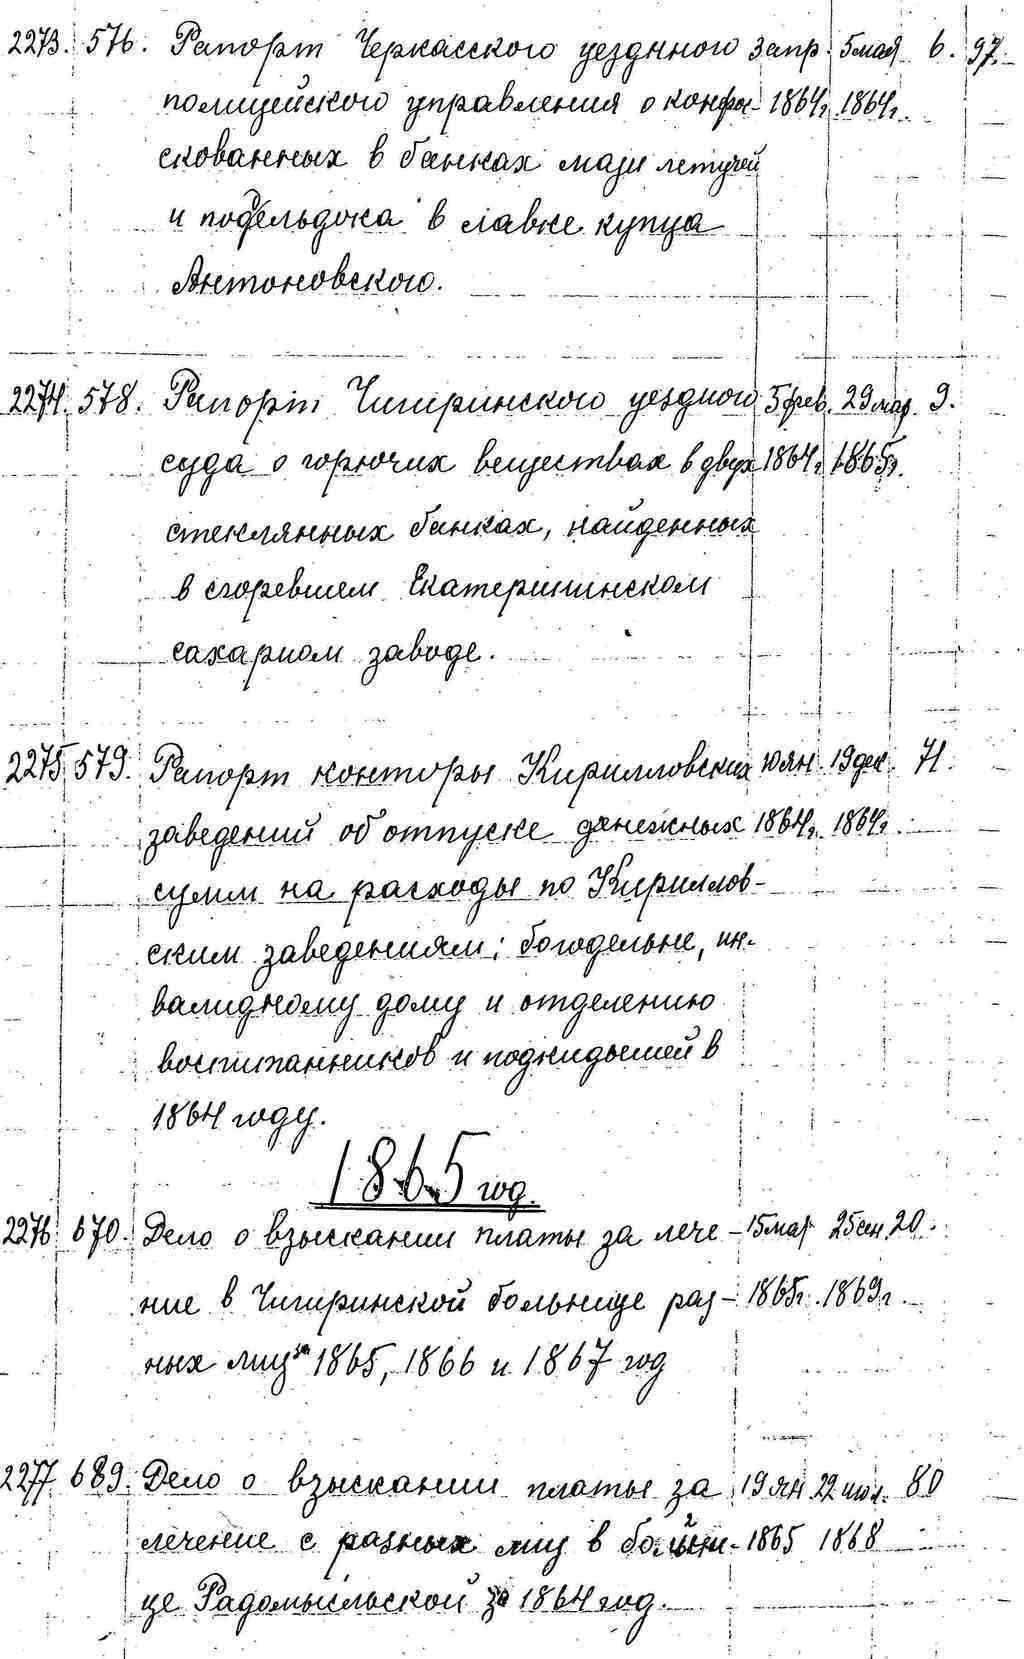 2273. 576. Рапорт Черкасского уездного 3 апр. 5 мая 6. 97.
полицейского управления о конфи- 1864г. 1864г.
скованных в банках мази летучей
и подельдока в лавке купца
Антоновского.
2274. 578. Рапорт Чигиринского уездного 5 фев. 29 мар. 9.
суда о горючих веществах в двух 1864г. 1865г.
стеклянных банках, найденных
в сгоревшем Екатерининском
сахарном заводе.
2275. 579. Рапорт конторы Кирилловских 10 ян. 19 дек. 71.
заведений об отпуске денежных 1864г. 1864г.
сумм на расходы по Кириллов-
ским заведениям: богодельне, ин-
валидному дому и отделению
воспитанников и подкидышей в
1864 году.
1865 год.
2276. 670. Дело о взыскании платы за лече- 15 мар 25 сен. 20.
ние в Чигиринской больнице раз- 1865г. 1869г.
ных лиц за 1865, 1866 и 1867 год
2277 689. Дело о взыскании платы за 19 ян 22 июл. 80
лечение с разных лиц в больни- 1865 1868
це Радомысльской за 1864 год.